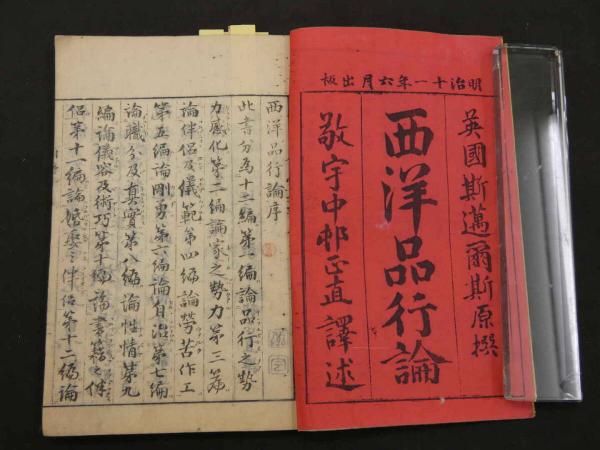 明治十一年六月出板
英國斯邁爾斯原撰
西洋品行論
敬宇中邨正直譯述
西洋品行論序
此書分為十二編第一編論品行之勢
力感化第二編論家之勢力第三編
論伴侶及儀範第四編論勞苦作工
第五編論剛勇第六編論自治第七編
論職分及真實第八編論性情第九
編論儀容及術巧第十編論書籍之伴
侶第十一編論婚娶之伴侶第十二編論